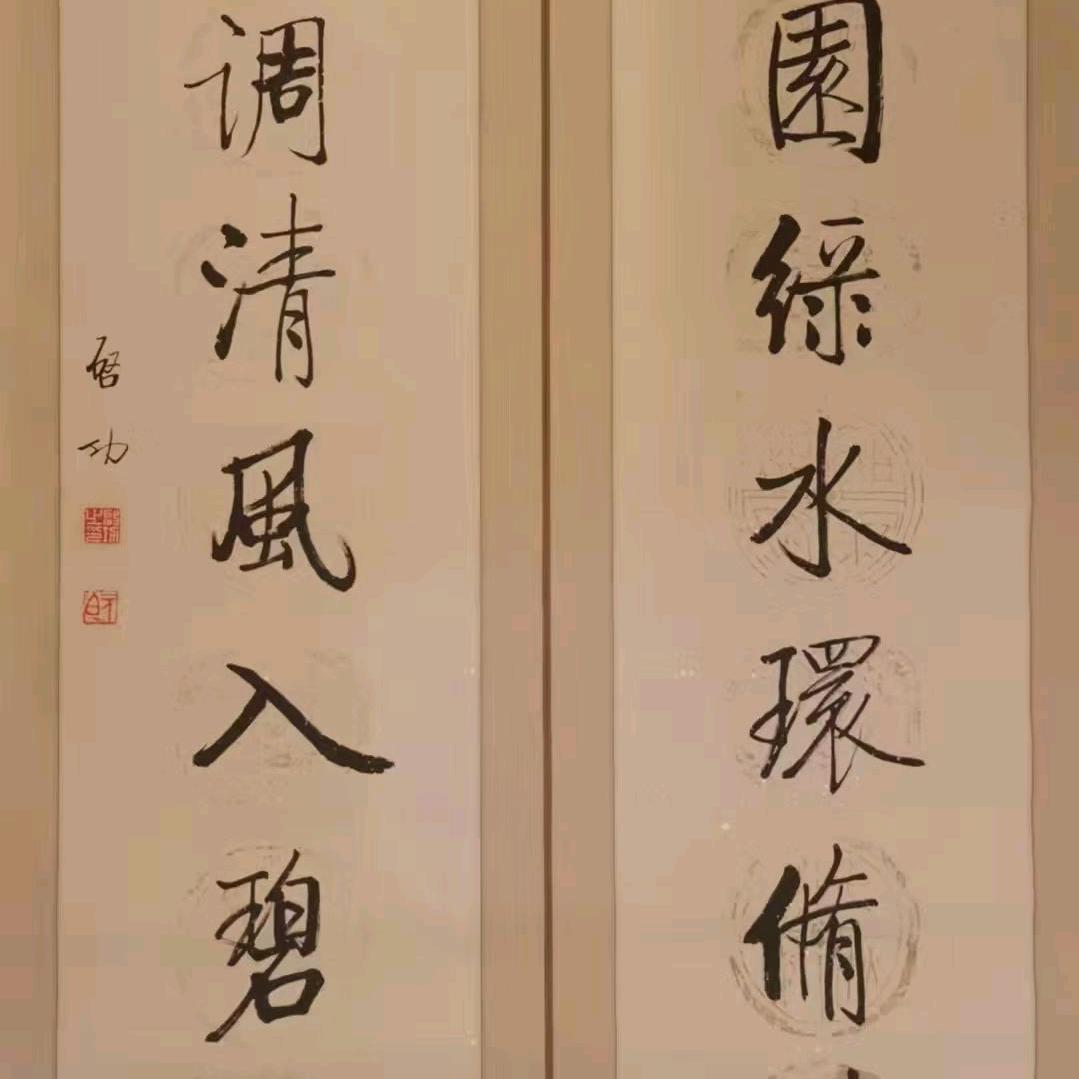 園綠水環脩
调清風入碧
启功